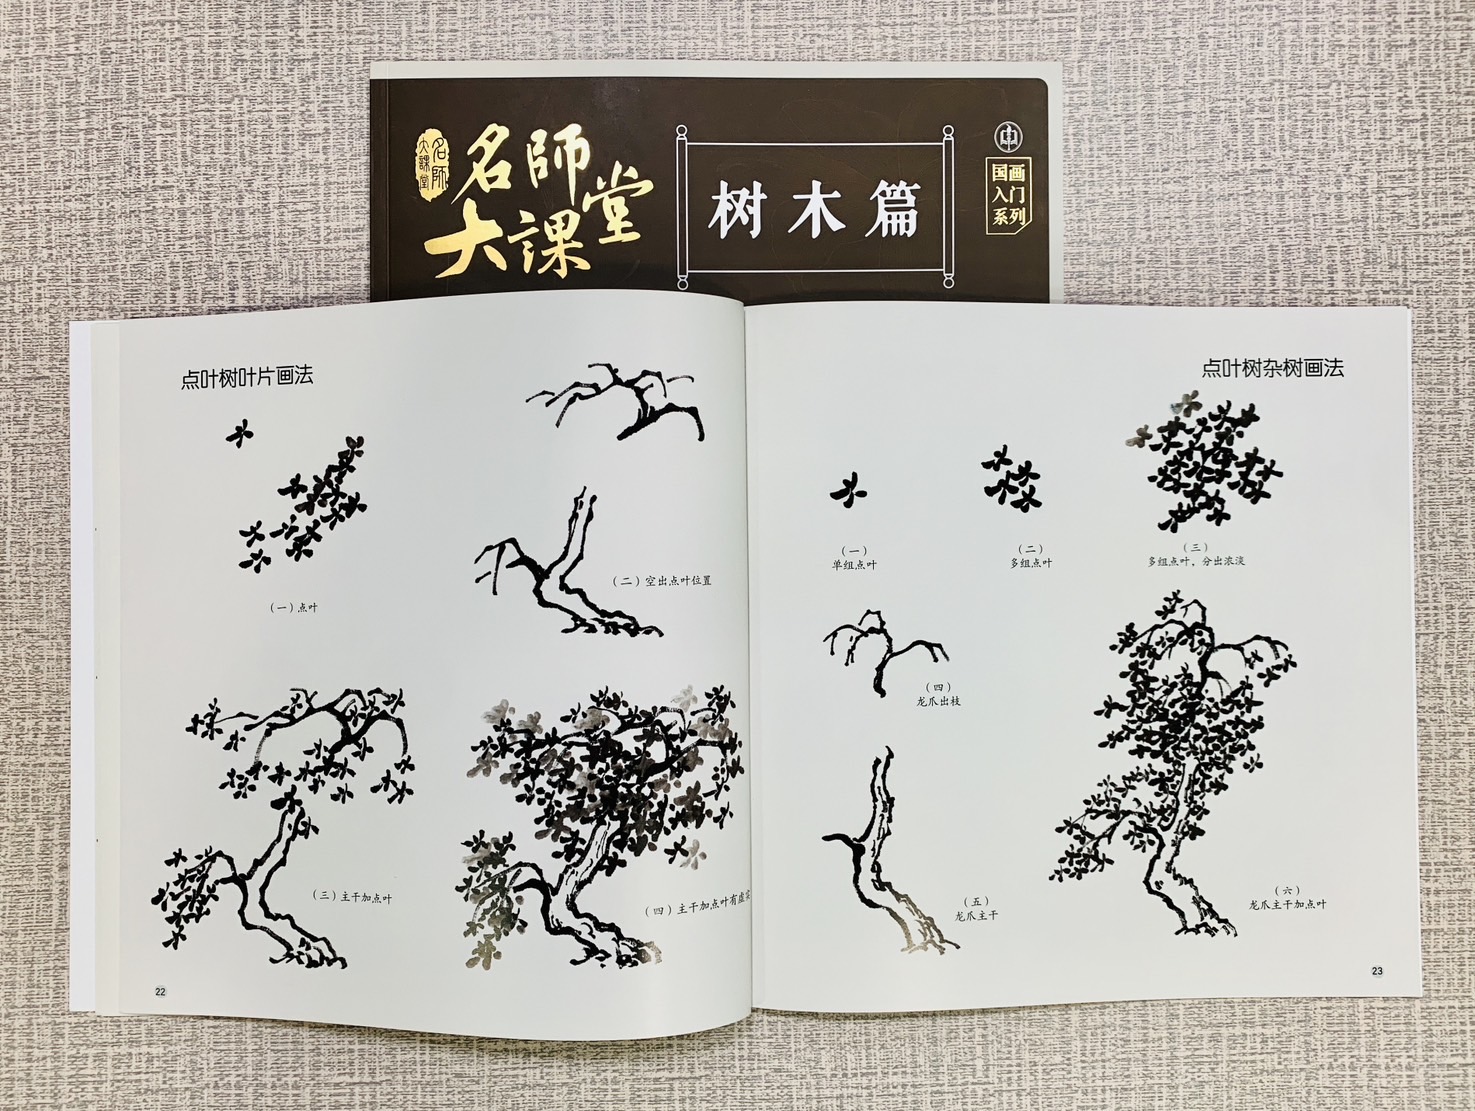 名師
大課堂
名師
大課堂
树木篇
国画
入门
系列
点叶树叶片画法
(一)点叶
(二)空出点叶位置
(三)主干加点叶
(四)主干加点叶有虚实
22
点叶树杂树画法
(一)
单组点叶
(二)
多组点叶
(三)
多组点叶，分出浓淡
(四)
龙爪出枝
(五)
龙爪主干
(六)
龙爪主干加点叶
23